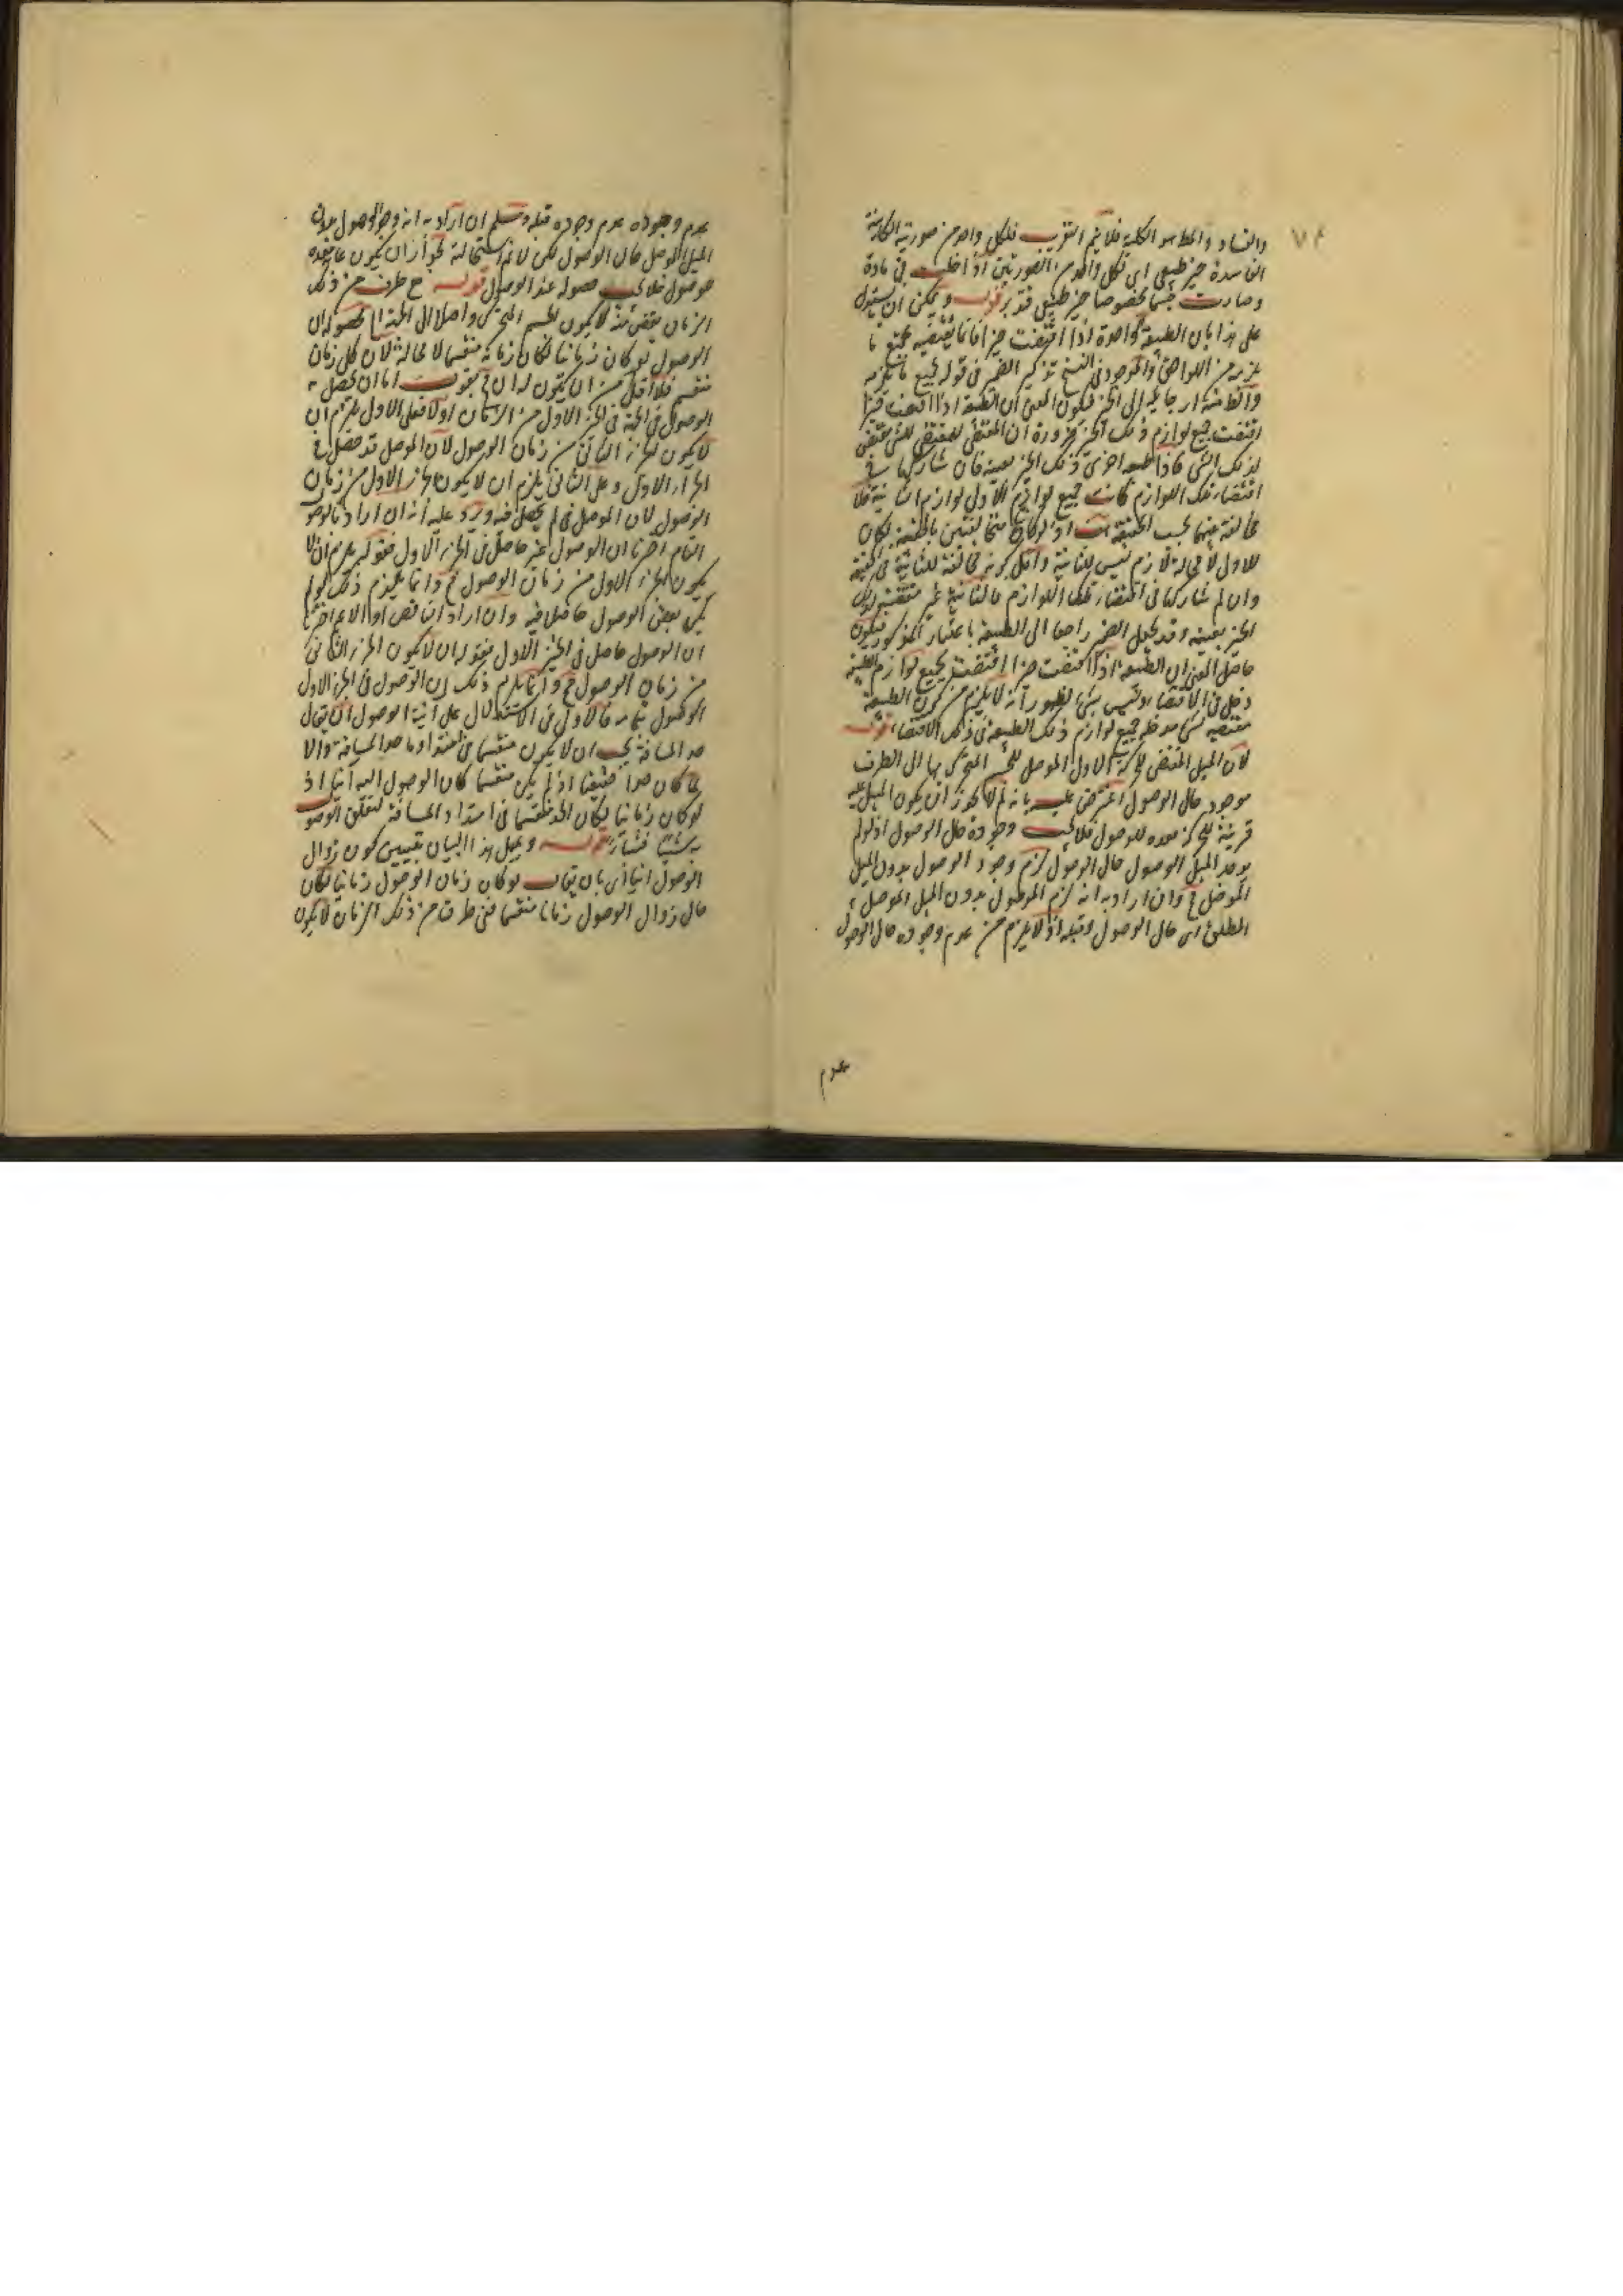 ٧٤
والفساد والخط هو الكلية فلا يتم التقريب فلكل واحد من صورتيه الكائنة
الفاسدة حيز طبيعي اي لكل واحد من الصورتين اذا حلت في مادة
وصارت جسما مخصوصا حيز طبيعي فتدبر قوله ويمكن ان يستدل
على هذا بان الطبيعة الواحدة اذا اقتضت حيزا فانما يقتضيه بجميع ما
يلزمه من اللواحق والموجود في النسخ تذكير الضمير في قوله بجميع ما يلزمه
والظاهر ارجاعه الى الحيز فيكون المعنى ان الطبيعة اذا اقتضت حيزا
اقتضت جميع لوازم ذلك الحيز ضرورة ان المقتضى للمقتضى للشي مقتضى
لذلك الشي فاذا طبيعة اخرى ذلك الحيز بعينه فان شاركها في
اقتضاء تلك اللوازم كانت جميع لوازم الاول لوازم الثانية فلا
مخالفة بينهما بحسب الحقيقة اذ لو كانتا متخالفتين بالحقيقة لكان
للاول لا محالة لازم ليس للثانية واقله كونه مخالفة للثانية في الحقيقة
وان لم تشاركها في اقتضاء تلك اللوازم فالثانية غير مقتضية لذلك
الحيز بعينه وقد يجعل الضمير راجعا الى الطبيعة باعتبار المذكور فيكون
حاصل المعنى ان الطبيعة اذا اقتضت حيزا اقتضت بجميع لوازم الطبيعة
دخل في الاقتضاء وليس بشي لظهور انه لا يلزم من كون الطبيعة
مقتضية لشي مدخلية جميع لوازم ذلك الطبيعة في ذلك الاقتضاء قوله
لان الميل المقتضي للحركة الاولى الموصل للجسم المتحرك بها الى الطرف
موجود حال الوصول اعترض عليه بانه لم لا يجوز ان يكون الميل علة
قريبة للحركة معدة للوصول فلا يجب وجوده حال الوصول اذ لو لم
يوجد الميل الوصول حال الوصول لزم وجود الوصول بدون الميل
الموصل ح وان اراد به انه لزم الوصول بدون الميل الموصل
المطلق اي حال الوصول وقبله اذ لا يلزم من عدم وجوده حال الوصول
عدم
عدم وجوده عدم وجوده قبله ومسلم ان اراد به انه وجد الوصول بدون
الميل الموصل حال الوصول لكن لا نم استحالته لجواز ان يكون علة معدة
للوصول فلا يجب حصوله عند الوصول قوله ح طرف من ذلك
الزمان يقتضي منه لا يكون الجسم المتحرك واصلا الى الحد المحصوله ان
الوصول لو كان زمانيا لكان زمانه منقسما لا محالة لان كل زمان
منقسم فلا اقل من ان يكون له ان في بقوله اما ان يحصل
الوصول في الجزء الاول من الزمان اولا فعلى الاول يلزم ان
لا يكون الجزء الثاني من زمان الوصول لان الموصل قد حصل في
الجزء الاول وعلى الثاني يلزم ان لا يكون الجزء الاول من زمان
الوصول لان الموصل لم يحصل فيه ويرد عليه انه ان اراد بالوصول
التام اخترنا ان الوصول غير حاصل في الجزء الاول فقوله يلزم ان لا
يكون الجزء الاول من زمان الوصول ح وانما يلزم ذلك لو لم
يكن بعض الوصول حاصلا فيه وان اراد الناقص او الاعم اخترنا
ان الوصول حاصل في الجزء الاول فقوله ان لا يكون الجزء الثاني
من زمان الوصول ح وانما يلزم ذلك ان الوصول في الجزء الاول
الوصول بتمامه فالاولى في الاستدلال على آنية الوصول ان يقال
حد المسافة يجب ان لا يكون منقسما في امتداد ما حد المسافة والا
لما كان حدا حقيقيا اذ لم يكن منقسما كان الوصول اليه آنيا اذ
لو كان زمانيا لكان الحد منقسما في امتداد المسافة لتعلق الوصول
به شيئا فشيئا قوله وبمثل هذا البيان يتبين كون زوال
الوصول آنيا اي بان يقال لو كان زمان الوصول زمانيا لكان
حال زوال الوصول زمانا منقسما ففي طرف من ذلك الزمان لا يكون